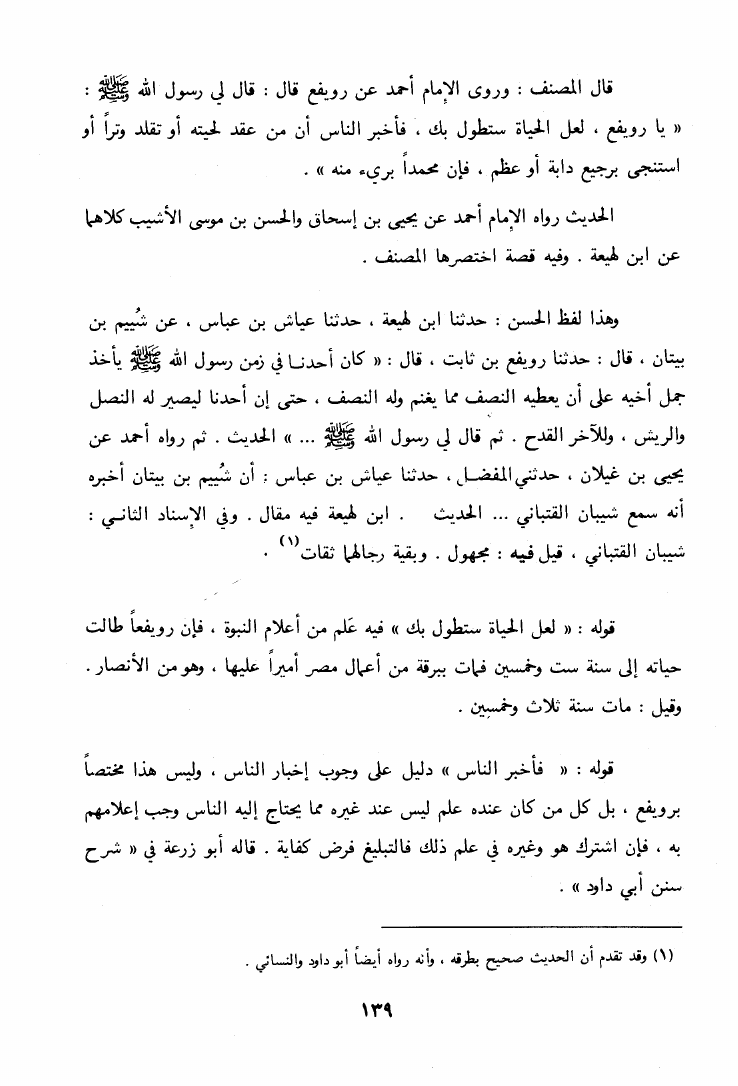 قال المصنف : وروى الإمام أحمد عن رويفع قال : قال لي رسول الله ﷺ :
« يا رويفع ، لعل الحياة ستطول بك ، فأخبر الناس أن من عقد لحيته أو تقلد وتراً أو
استنجى برجيع دابة أو عظم ، فإن محمداً بريء منه » .
الحديث رواه الإمام أحمد عن يحيى بن إسحاق والحسن بن موسى الأشيب كلاهما
عن ابن لهيعة . وفيه قصة اختصرها المصنف .
وهذا لفظ الحسن : حدثنا ابن لهيعة ، حدثنا عياش بن عباس ، عن شُييم بن
بيتان ، قال : حدثنا رويفع بن ثابت ، قال : « كان أحدنا في زمن رسول الله ﷺ يأخذ
جمل أخيه على أن يعطيه النصف مما يغنم وله النصف ، حتى إن أحدنا ليصير له النصل
والريش ، وللآخر القدح . ثم قال لي رسول الله ﷺ ... » الحديث . ثم رواه أحمد عن
يحيى بن غيلان ، حدثني المفضل ، حدثنا عياش بن عباس : أن شُييم بن بيتان أخبره
أنه سمع شيبان القتباني ... الحديث . ابن لهيعة فيه مقال . وفي الإسناد الثاني :
شيبان القتباني ، قيل فيه : مجهول . وبقية رجالهما ثقات(١) .
قوله : « لعل الحياة ستطول بك » فيه عَلم من أعلام النبوة ، فإن رويفعاً طالت
حياته إلى سنة ست وخمسين فمات ببرقة من أعمال مصر أميراً عليها ، وهو من الأنصار .
وقيل : مات سنة ثلاث وخمسين .
قوله : « فأخبر الناس » دليل على وجوب إخبار الناس ، وليس هذا مختصاً
برويفع ، بل كل من كان عنده علم ليس عند غيره مما يحتاج إليه الناس وجب إعلامهم
به ، فإن اشترك هو وغيره في علم ذلك فالتبليغ فرض كفاية . قاله أبو زرعة في « شرح
سنن أبي داود » .
(١) وقد تقدم أن الحديث صحيح بطرقه ، وأنه رواه أيضاً أبو داود والنسائي .
١٣٩